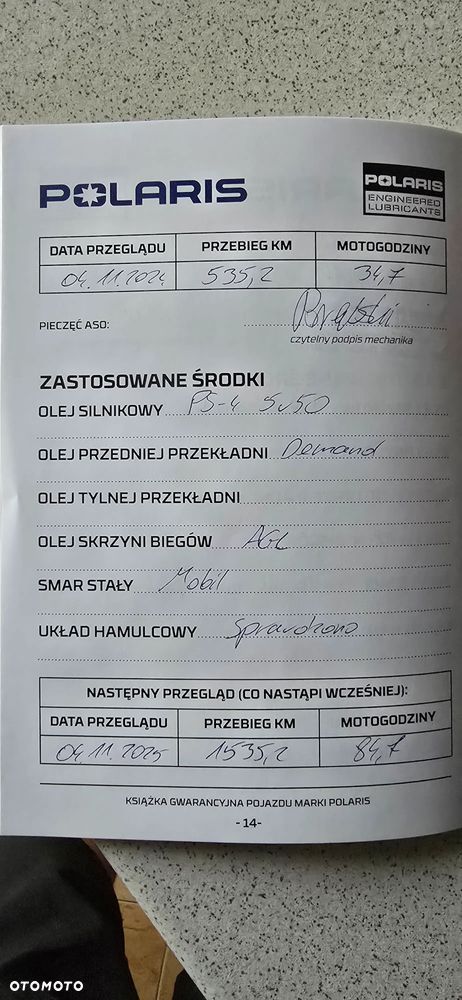 POLARIS
POLARIS
ENGINEERED
LUBRICANTS
DATA PRZEGLĄDU PRZEBIEG KM MOTOGODZINY
04.11.2024 535,2 34,7
PIECZĘĆ ASO:
czytelny podpis mechanika
ZASTOSOWANE ŚRODKI
OLEJ SILNIKOWY PS-4 5w50
OLEJ PRZEDNIEJ PRZEKŁADNI Demand
OLEJ TYLNEJ PRZEKŁADNI
OLEJ SKRZYNI BIEGÓW AGL
SMAR STAŁY Mobil
UKŁAD HAMULCOWY Sprawdzono
NASTĘPNY PRZEGLĄD (CO NASTĄPI WCZEŚNIEJ):
DATA PRZEGLĄDU PRZEBIEG KM MOTOGODZINY
04.11.2025 1535,2 84,7
KSIĄŻKA GWARANCYJNA POJAZDU MARKI POLARIS
-14-
OTOMOTO